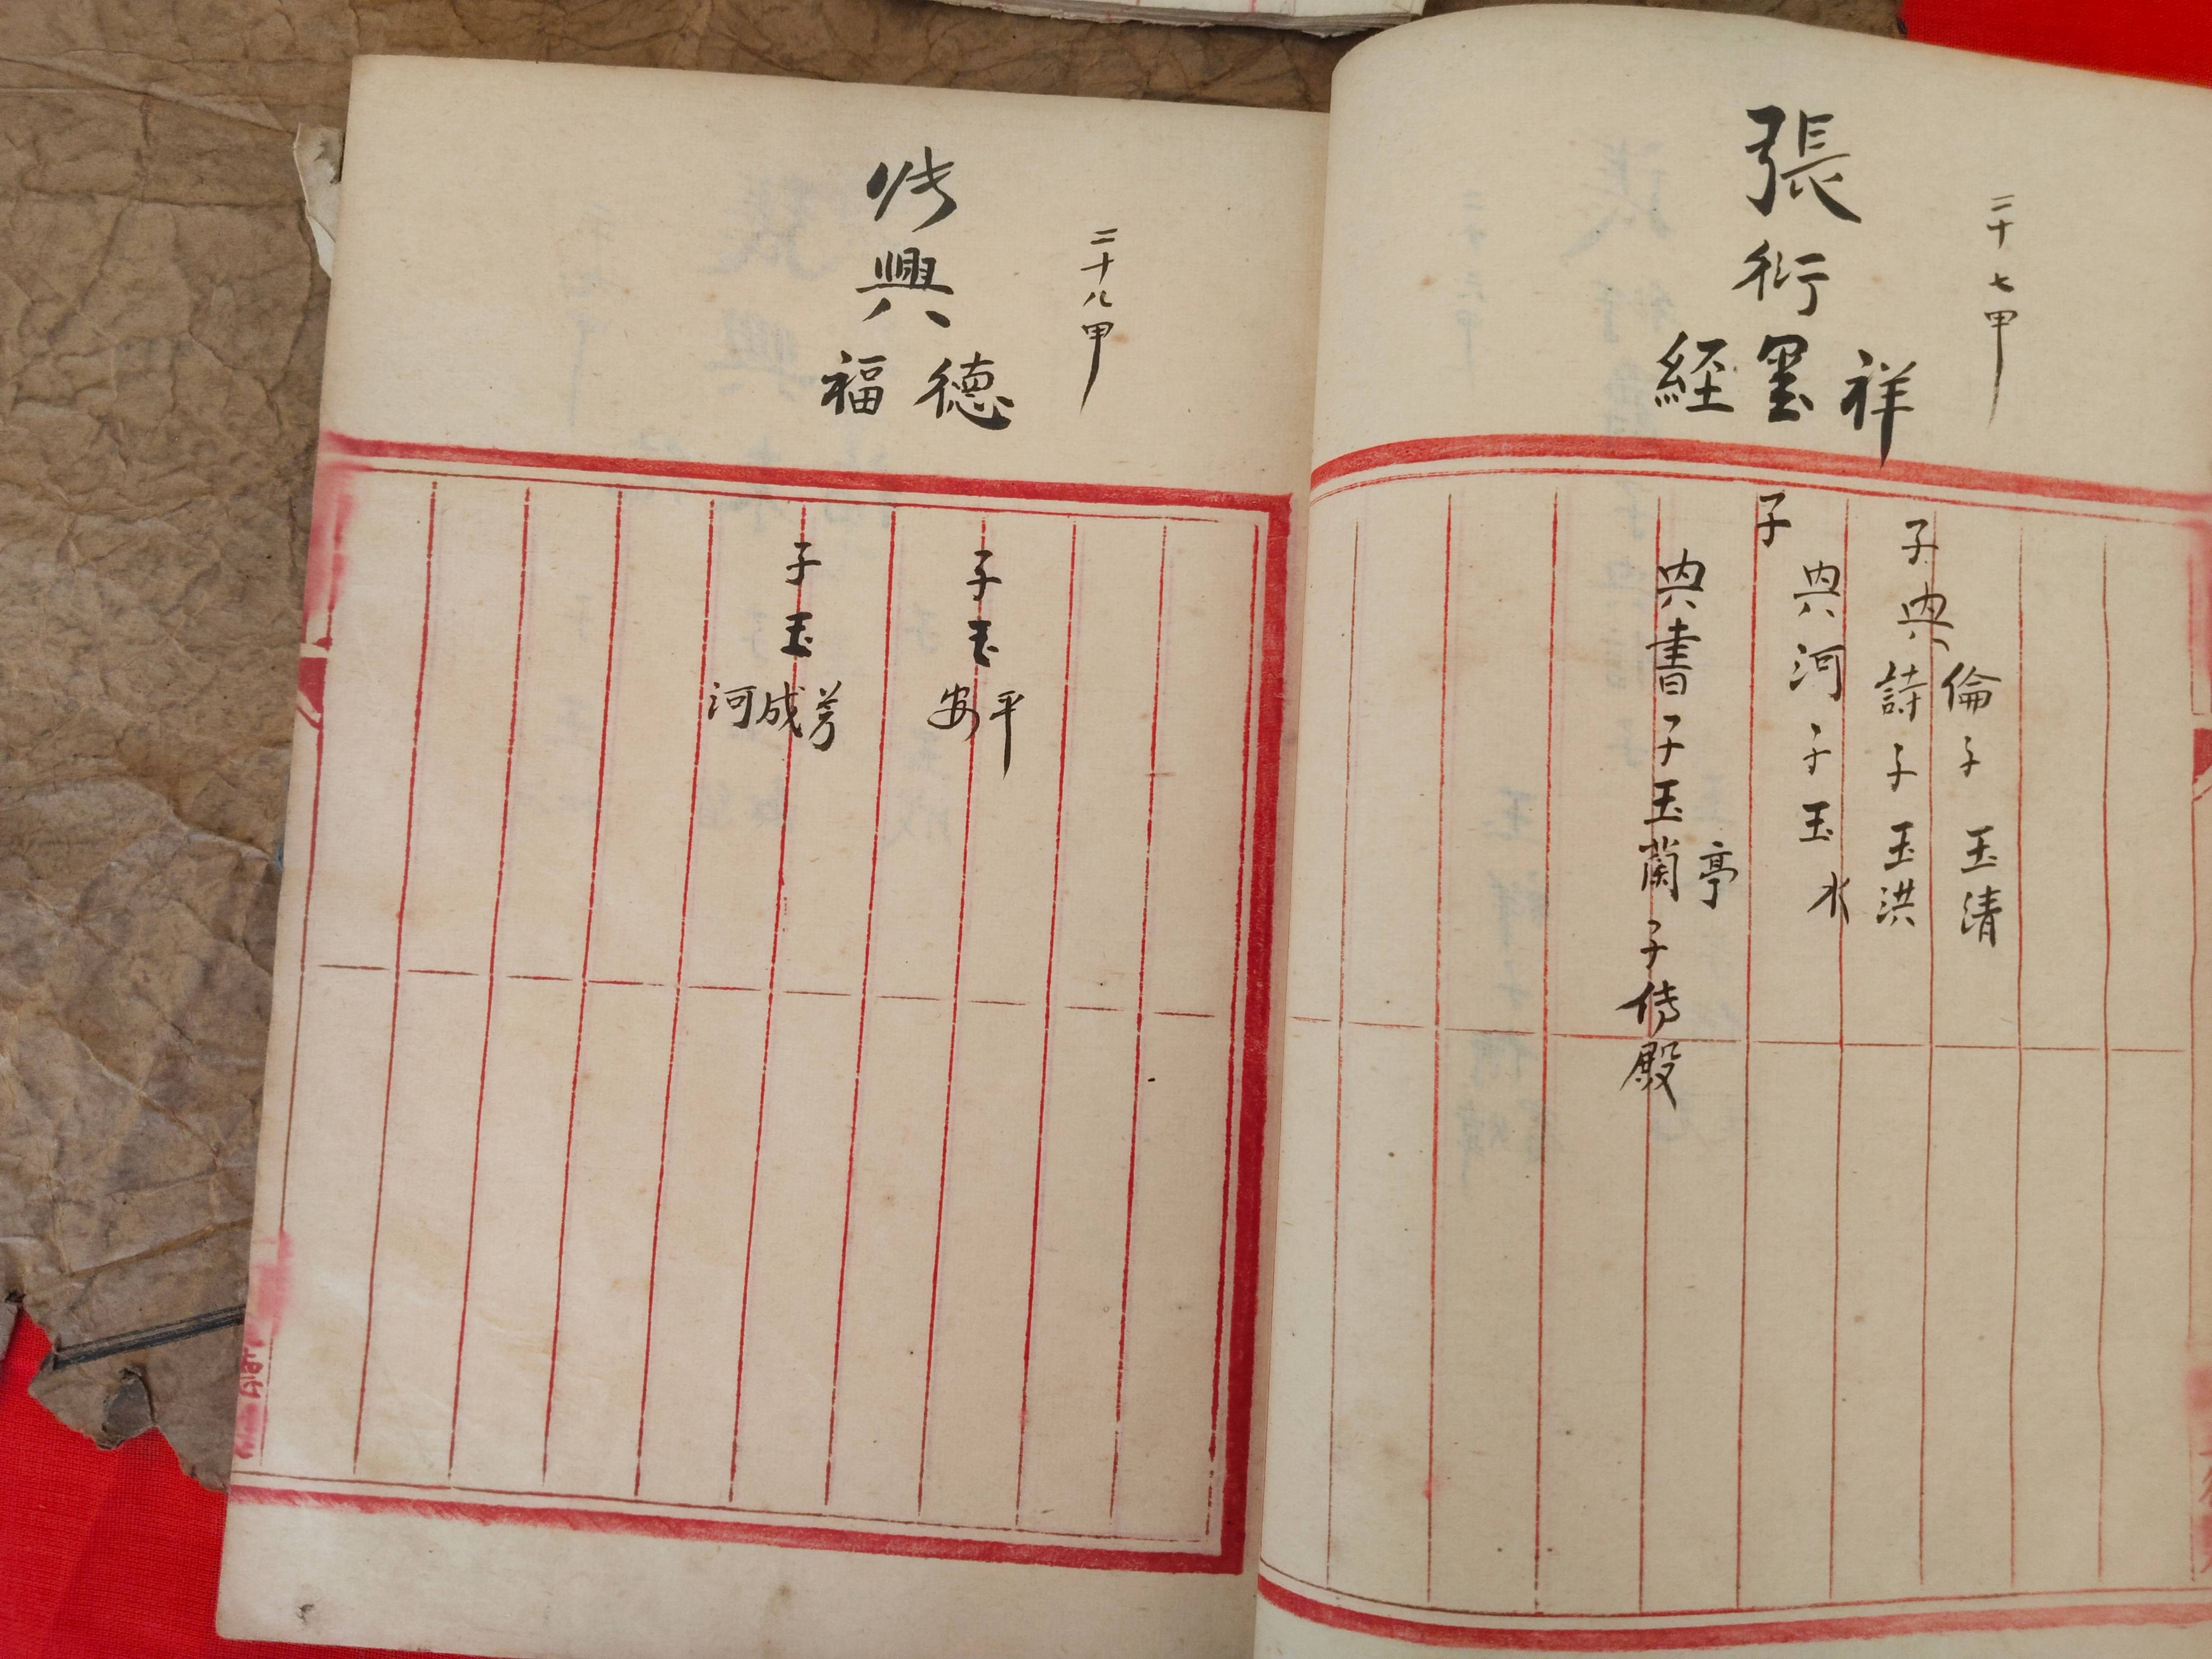 二十七甲
張
衍
祥
墨
經
子典
倫子玉清
詩子玉洪
子
典河子玉水
典書子玉
亭
蘭子傳殿
二十八甲
興
德
福
子玉
平
安
子玉
芳
成
河